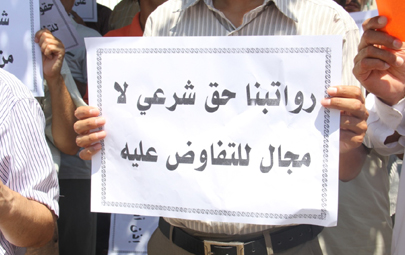 رواتبنا حق شرعي لا
مجال للتفاوض عليه